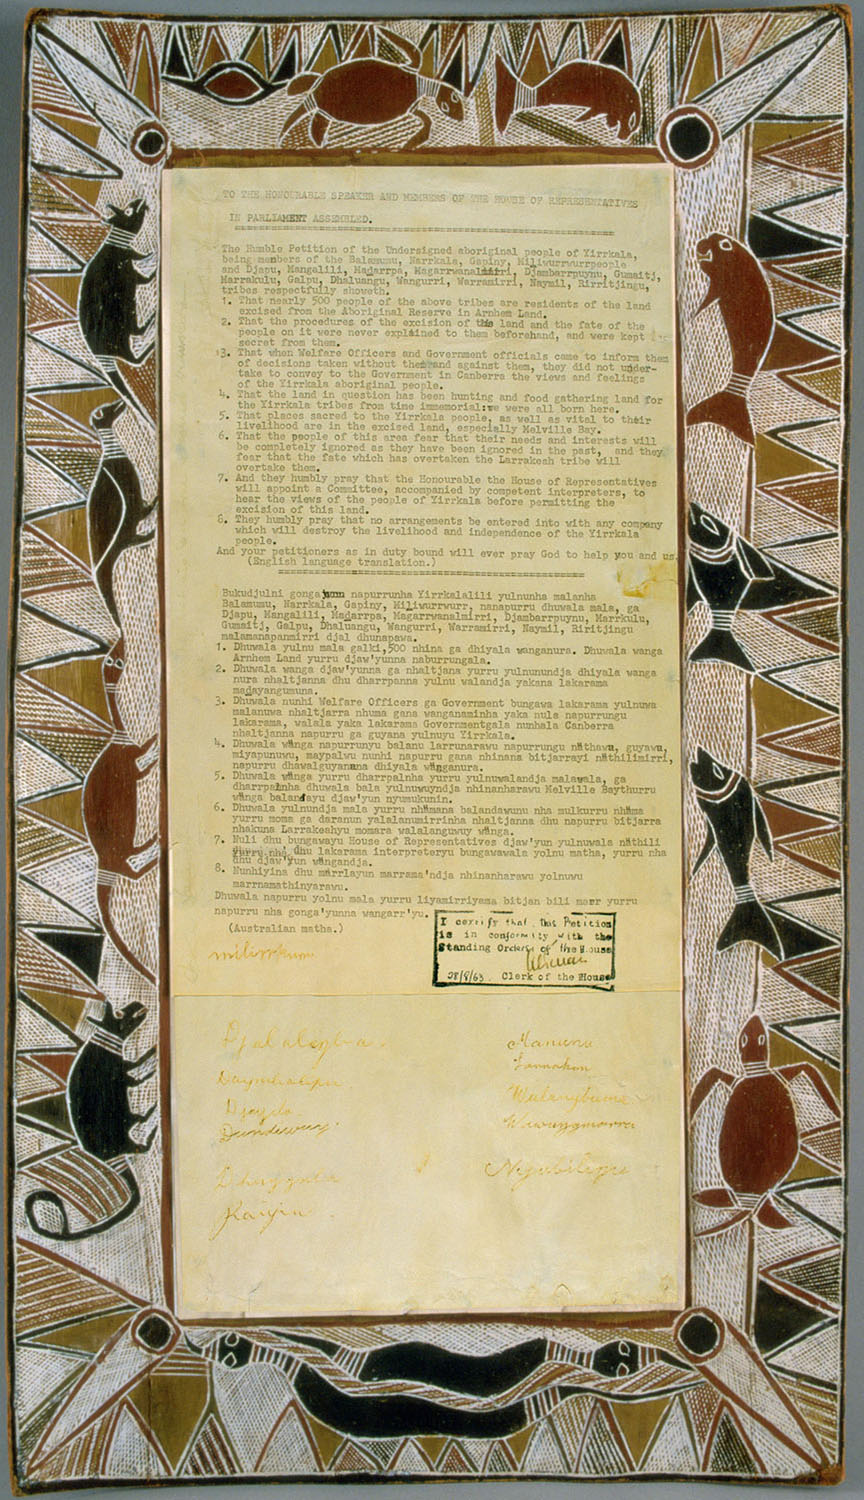 TO THE HONOURABLE SPEAKER AND MEMBERS OF THE HOUSE OF REPRESENTATIVES
IN PARLIAMENT ASSEMBLED.
The Humble Petition of the Undersigned aboriginal people of Yirrkala,
being members of the Balamumu, Narrkala, Gapiny, Miliwurrwurrpeople
and Djapu, Mangalili, Madarrpa, Magarrwanalmirri, Djambarrpuynu, Gumaitj,
Marrakulu, Galpu, Dhaluangu, Wangurri, Warramirri, Naymil, Rirritjingu,
tribes respectfully showeth.
1. That nearly 500 people of the above tribes are residents of the land
excised from the Aboriginal Reserve in Arnhem Land.
2. That the procedures of the excision of this land and the fate of the
people on it were never explained to them beforehand, and were kept
secret from them.
3. That when Welfare Officers and Government officials came to inform them
of decisions taken without them and against them, they did not under-
take to convey to the Government in Canberra the views and feelings
of the Yirrkala aboriginal people.
4. That the land in question has been hunting and food gathering land for
the Yirrkala tribes from time immemorial: we were all born here.
5. That places sacred to the Yirrkala people, as well as vital to their
livelihood are in the excised land, especially Melville Bay.
6. That the people of this area fear that their needs and interests will
be completely ignored as they have been ignored in the past, and they
fear that the fate which has overtaken the Larrakeah tribe will
overtake them.
7. And they humbly pray that the Honourable the House of Representatives
will appoint a Committee, accompanied by competent interpreters, to
hear the views of the people of Yirrkala before permitting the
excision of this land.
8. They humbly pray that no arrangements be entered into with any company
which will destroy the livelihood and independence of the Yirrkala
people.
And your petitioners as in duty bound will ever pray God to help you and us.
(English language translation.)
Bukudjulni gonga'yurru napurrunha Yirrkalalili yulnunha malanha
Balamumu, Narrkala, Gapiny, Miliwurrwurr, nanapurru dhuwala mala, ga
Djapu, Mangalili, Madarrpa, Magarrwanalmirri, Djambarrpuynu, Marrkulu,
Gumaitj, Galpu, Dhaluangu, Wangurri, Warramirri, Naymil, Riritjingu
malamanapanmirri djal dhunapawa.
1. Dhuwala yulnu mala galki,500 nhina ga dhiyala wanganura. Dhuwala wanga
Arnhem Land yurru djaw'yunna naburrungala.
2. Dhuwala wanga djaw'yunna ga nhaltjana yurru yulnunundja dhiyala wanga
nura nhaltjanna dhu dharrpanna yulnu walandja yakana lakarama
madayangumuna.
3. Dhuwala nunhi Welfare Officers ga Government bungawa lakarama yulnuwa
malanuwa nhaltjarra nhuma gana wanganaminha yaka nula napurrungu
lakarama, walala yaka lakarama Governmentgala nunhala Canberra
nhaltjanna napurru ga guyana yulnuyu Yirrkala.
4. Dhuwala wänga napurrunyu balanu larrunarawu napurrungu näthawu, guyawu,
miyapunuwu, maypalwu nunhi napurru gana nhinana bitjarrayi näthilimirri,
napurru dhawalguyanana dhiyala wänganura.
5. Dhuwala wänga yurru dharrpalnha yurru yulnuwalandja malawala, ga
dharrpalnha dhuwala bala yulnuwuyndja nhinanharawu Melville Baythurru
wänga balandayu djaw'yun nyumukunin.
6. Dhuwala yulnundja mala yurru nhämana balandawunu nha mulkurru nhäma
yurru moma ga daranun yalalanumirrinha nhaltjanna dhu napurru bitjarra
nhakuna Larrakeahyu momara walalanguwuy wänga.
7. Nuli dhu bungawayu House of Representatives djaw'yun yulnuwala näthili
yurru nha dhu lakarama interpreteryu bungawawala yolnu matha, yurru nha
dhu djaw'yun wängandja.
8. Nunhiyina dhu märrlayun marrama'ndja nhinanharawu yolnuwu
marrnamathinyarawu.
Dhuwala napurru yolnu mala yurru liyamirriyama bitjan bili marr yurru
napurru nha gonga'yunna wangarr'yu.
(Australian matha.)
I certify that this Petition
is in conformity with the
Standing Orders of the House
28/8/63. Clerk of the House
milirrpum
Djalalingba
Daymbalipu
Dhayila
Dundiwuy
Dhuygala
Raiyin
Manunu
Larrakan
Wulanybuma
Wawunymarra
Nyabilingu